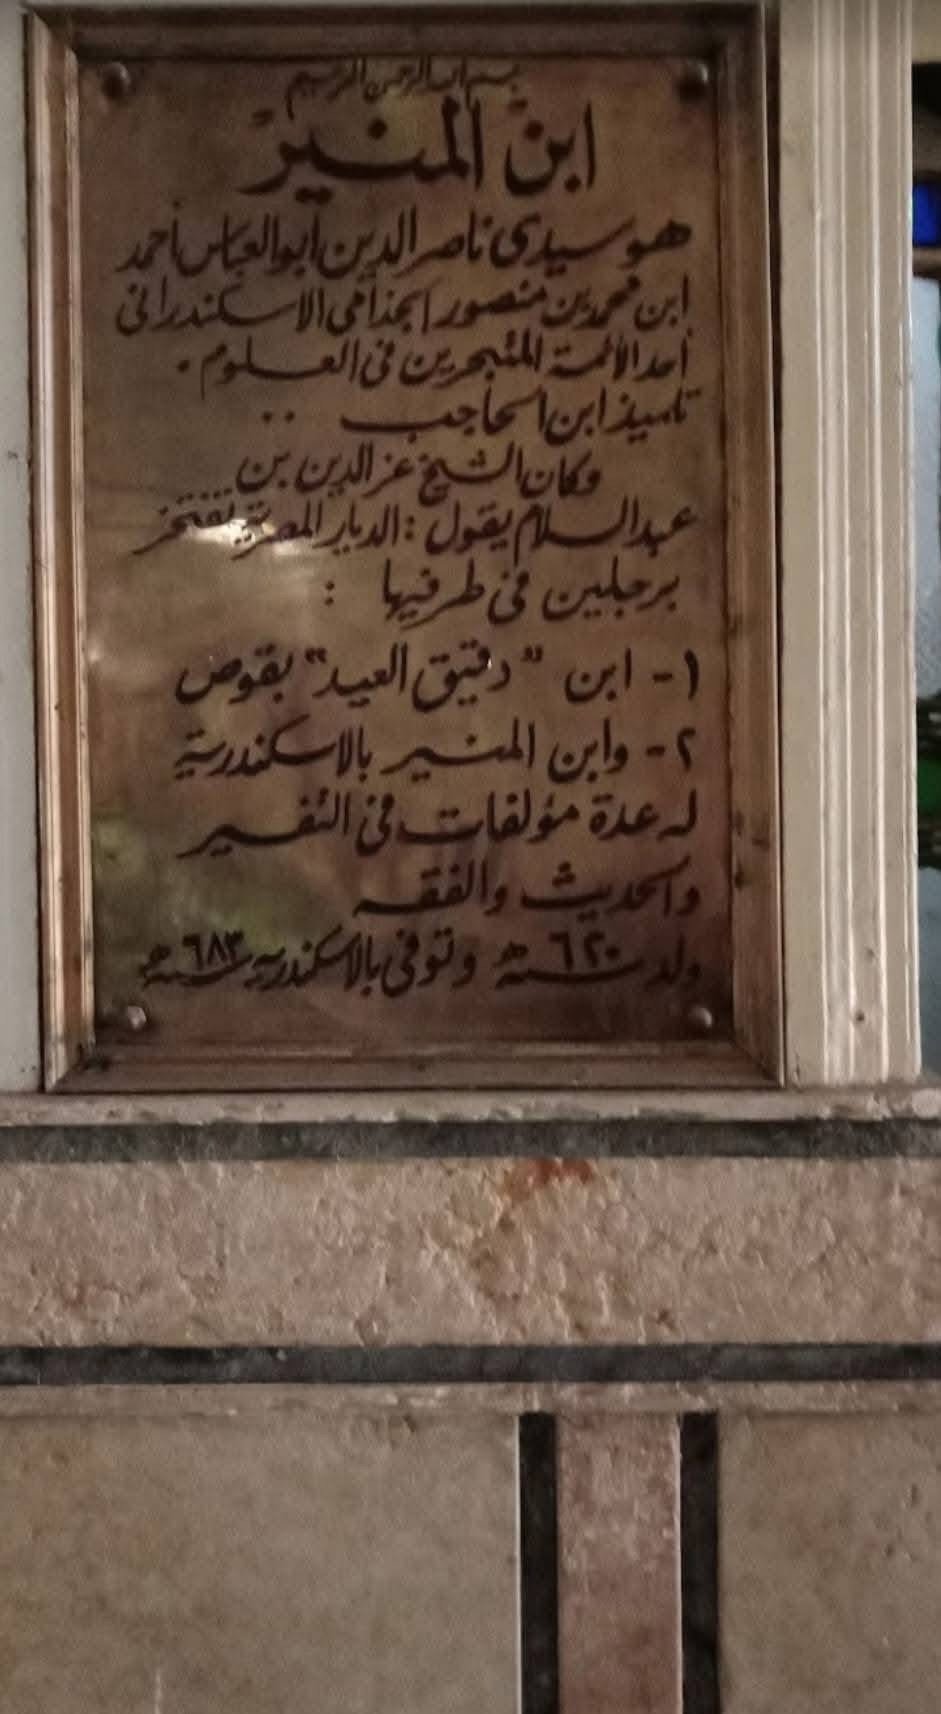 بسم الله الرحمن الرحيم
ابن المنير
هو سيدى ناصر الدين أبو العباس أحمد
ابن محمد بن منصور الجذامى الاسكندرانى
أحد الأئمة المتبحرين فى العلوم .
تلميذ ابن الحاجب ..
وكان الشيخ عز الدين بن
عبد السلام يقول : الديار المصرية تفتخر
برجلين فى طرفيها :
١ - ابن " دقيق العيد " بقوص
٢ - وابن المنير بالاسكندرية
له عدة مؤلفات فى التفسير
والحديث والفقه
ولد سنة ٦٢٠ هـ وتوفى بالاسكندرية سنة ٦٨٣ هـ